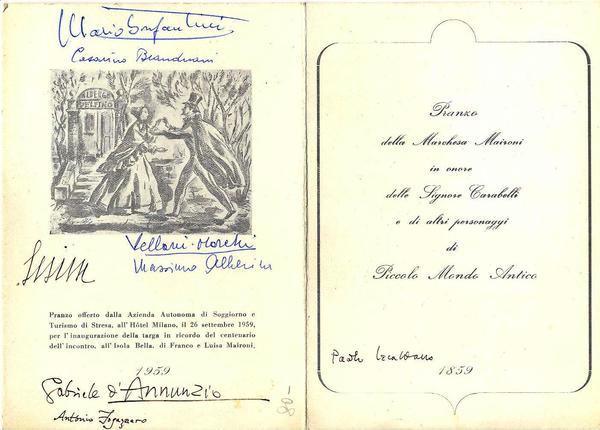 Mario Bonfantini
Cesarino Branduani
ALBERGO
DELFINO
Vellani-Marchi
Massimo Alberini
Pranzo offerto dalla Azienda Autonoma di Soggiorno e
Turismo di Stresa, all'Hôtel Milano, il 26 settembre 1959,
per l'inaugurazione della targa in ricordo del centenario
dell'incontro, all'Isola Bella, di Franco e Luisa Maironi.
1959
Gabriele d'Annunzio
Antonio Fogazzaro
Pranzo
della Marchesa Maironi
in onore
delle Signore Carabelli
e di altri personaggi
di
Piccolo Mondo Antico
Paolo
1859